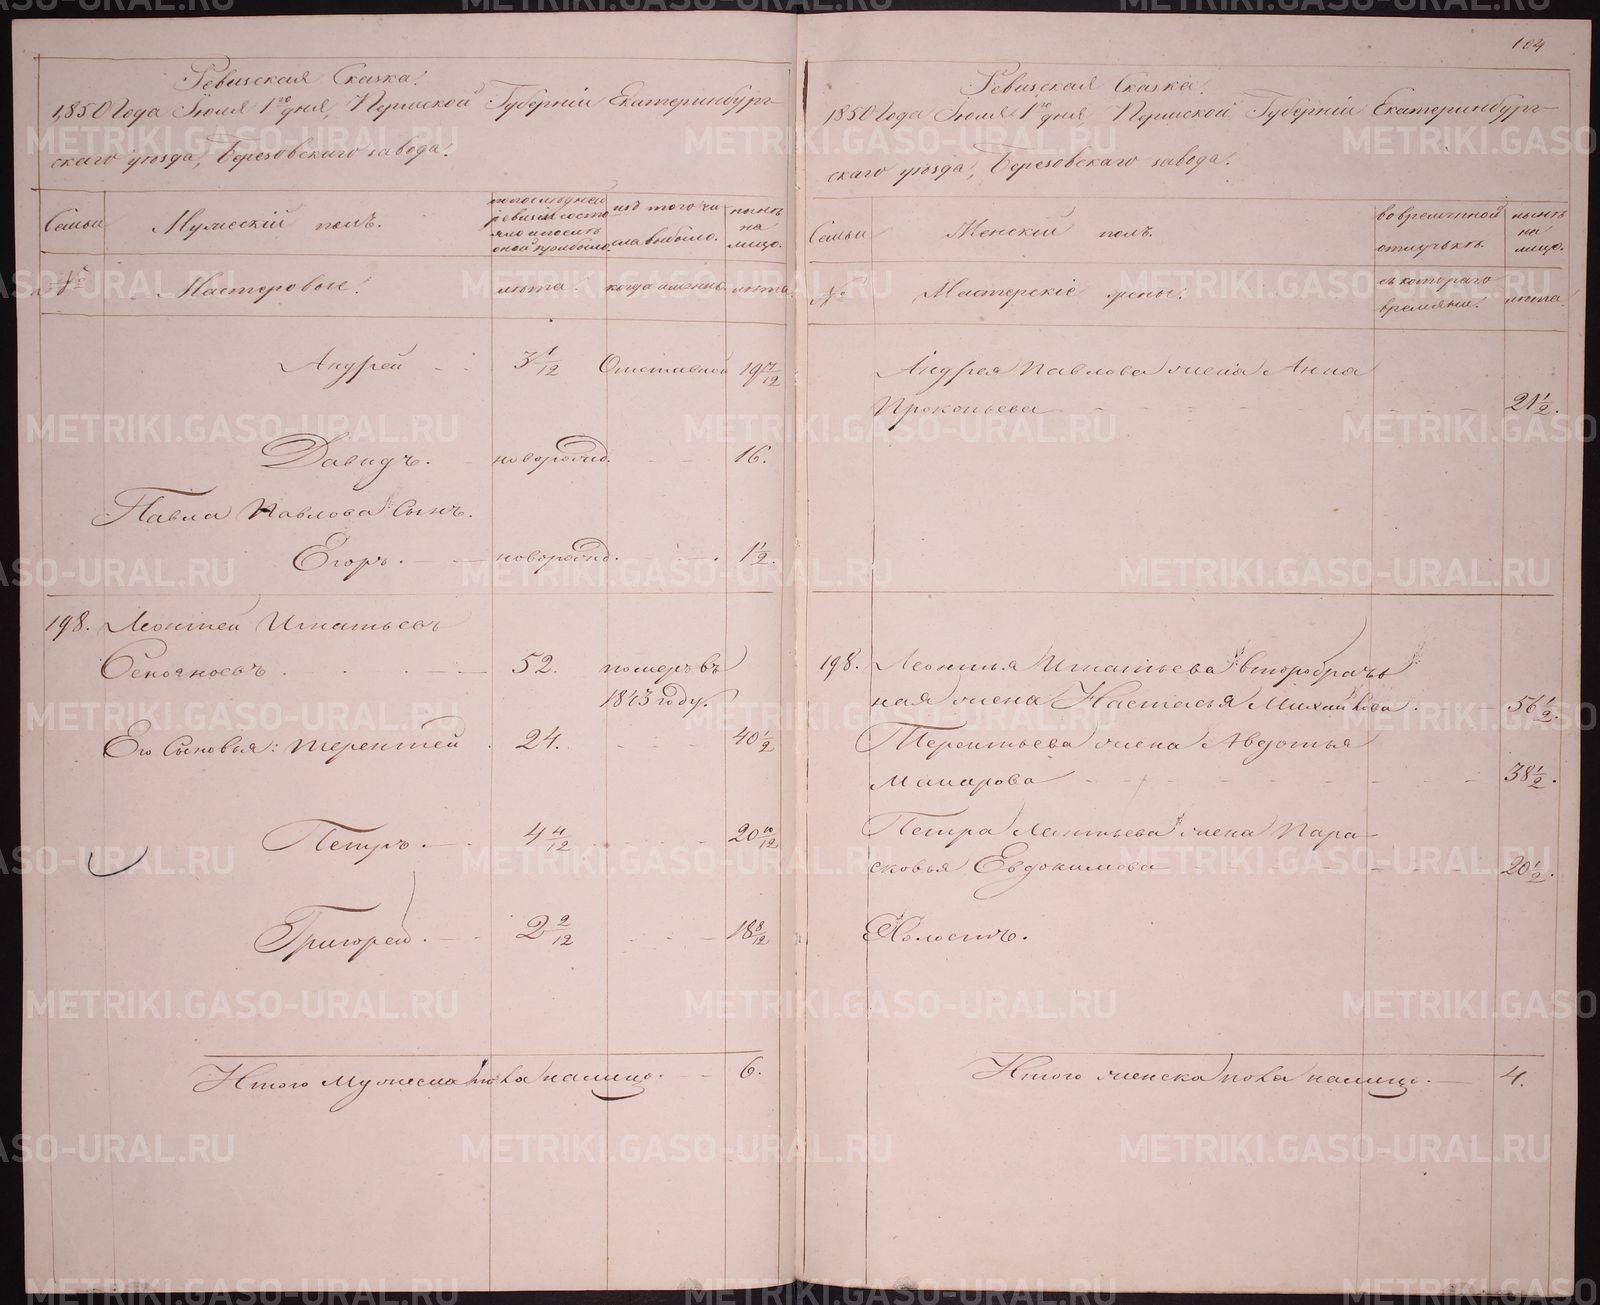 104
Ревизская Сказка.
1850 Года Июля 1го дня, Пермской Губерніи Екатеринбург-
скаго уѣзда, Березовскаго завода.
Семьи
Мужескій полъ.
по последней
ревизіи состо
яло и после
оной прибыло.
изъ того чи
сла выбыло.
нынѣ
на
лицо.
№
Мастеровые.
лѣта.
когда именно.
лѣта.
Андрей
3 1/12
Отставной
19 7/12
Давидъ.
новорожд.
16.
Павла Павлова Сынъ.
Егоръ.
новорожд.
1 1/2.
198. Леонтей Игнатьевъ
52.
померъ въ
1843 году.
Его Сыновья: Терентей
24.
40 1/2
Петръ.
4 4/12
20 10/12
Григорей.
2 2/12
18 8/12
Итого мужеска пола налицо.
6.
Ревизская Сказка.
1850 Года Июля 1го дня Пермской Губерніи Екатеринбург-
скаго уѣзда, Березовскаго завода.
Семьи
Женскій полъ.
во временной
отлучкѣ.
нынѣ
на
лицо.
№
Мастерскіе жены.
съ котораго
времяни.
лѣта
Андрея Павлова жена Анна
Прокопьева
21 1/2.
198. Леонтья Игнатьева второбрачъ
ная жена Настасья Михайлова.
56 1/2.
Терентьева жена Авдотья
Макарова
38 1/2.
Петра Леонтьева жена Пара-
сковья Евдокимова
20 1/2.
Холостъ.
Итого женска пола налицо.
4.
METRIKI.GASO-URAL.RU